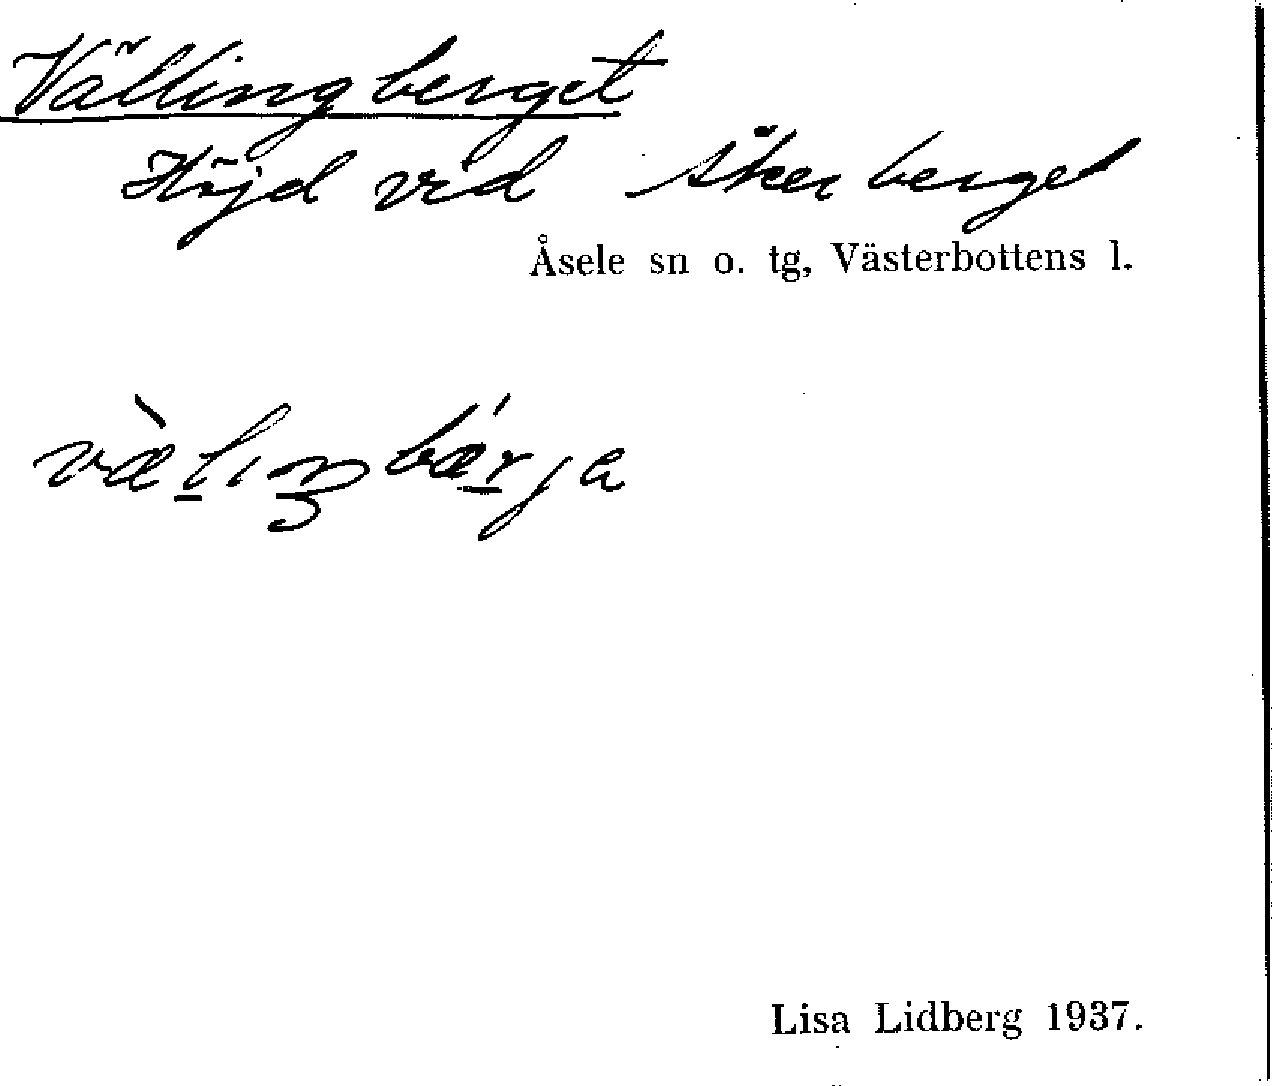 Vällingberget
Höjd vid Åkerberget
Åsele sn o. tg, Västerbottens l.
Lisa Lidberg 1937.